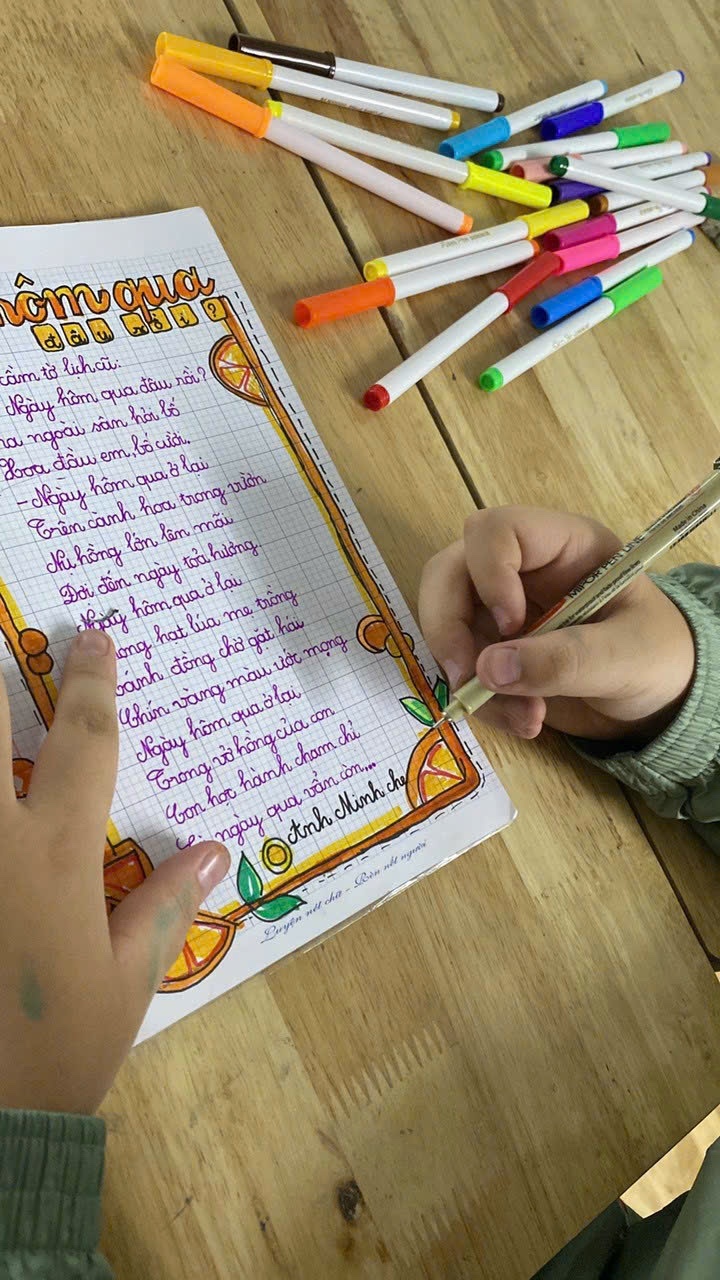 hôm qua
đâu rồi ?
cầm tờ lịch cũ:
Ngày hôm qua đâu rồi?
ra ngoài sân hỏi bố
Xoa đầu em, bố cười.
- Ngày hôm qua ở lại
Trên cành hoa trong vườn
Nụ hồng lớn lên mãi
Đợi đến ngày toả hương.
Ngày hôm qua ở lại
hạt lúa mẹ trồng
đồng chờ gặt hái
Chín vàng màu ước mong
Ngày hôm qua ở lại
Trong vở hồng của con
Con học hành chăm chỉ
ngày qua vẫn còn...
Anh Minh che
Luyện nét chữ - Rèn nết người
Made in China